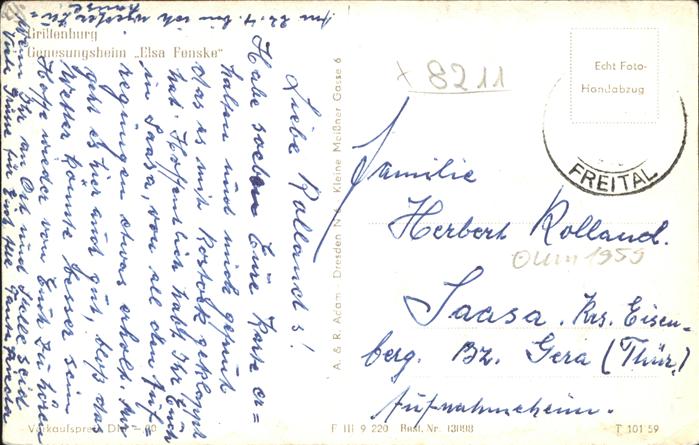 Am 22.4. bin ich wieder zu-
hause.
Grillenburg
Genesungsheim „Elsa Fenske"
Liebe Rollands!
Habe soeben Eure Karte er=
halten und mich gefreut
das es mit Rostock geklappt
hat. Hoffentlich habt Ihr Euch
in Saasa, von all den Auf=
regungen etwas erholt. Mir
geht es hier auch gut, bloß das
Wetter könnte besser sein
Hoffe wieder von Euch zu hören
wenn Ihr an Ort und Stelle seid
Viele Grüße für Euch alle
Verkaufspreis DM -.20
A. & R. Adam - Dresden N 6, Kleine Meißner Gasse 6
x 8211
Echt Foto-
Handabzug
FREITAL
Familie
Herbert Rolland.
1959
Saasa. Krs. Eisen-
berg. Bz. Gera (Thür.)
Aufnahmeheim.
F III 9 220 Best. Nr. 13098
T 101 59